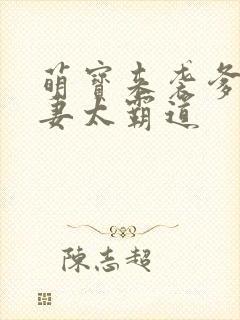 萌宝来袭爹
妻太霸道
陈志超